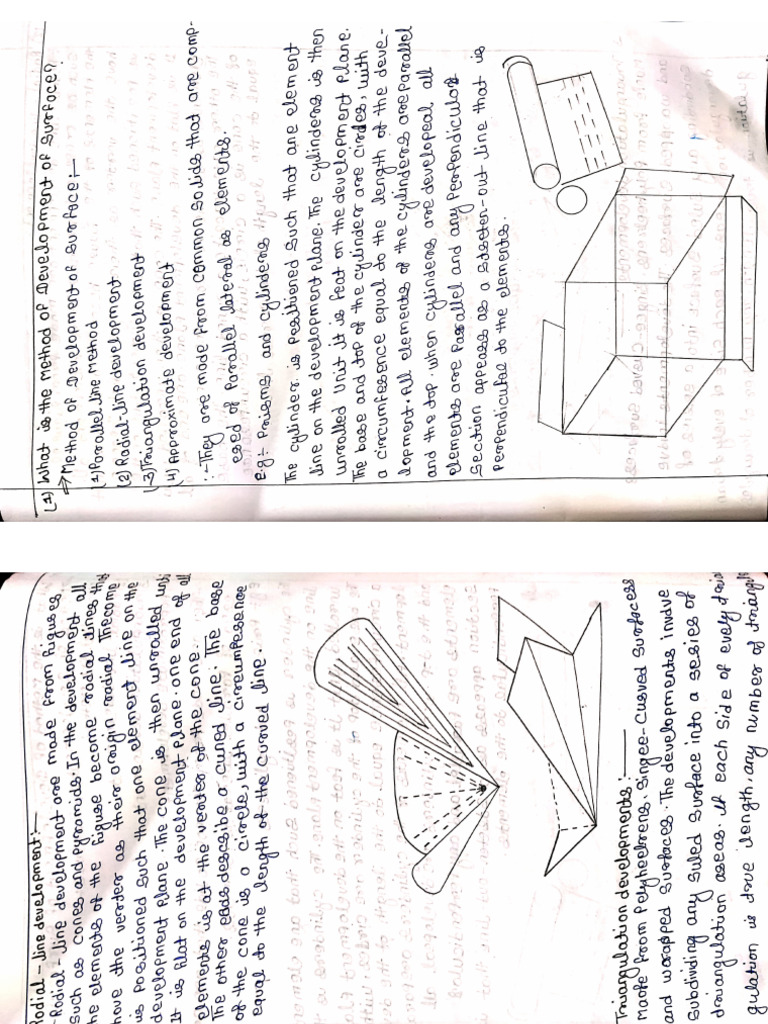 (1) What is the method of Development of Surface?
⇒ Method of Development of Surface:-
(1) Parallel line Method
(2) Radial-line development
(3) Triangulation development
(4) Approximate development
:- They are made from common solids that are comp-
osed of Parallel lateral as elements.
e.g:- Prisms and cylinders
The cylinder is positioned such that one element
line on the development plane. The cylinders is then
unrolled unit it is feat on the development Plane.
The base and top of the cylinder are circles, with
a circumference equal to the length of the deve-
lopment. All elements of the cylinders are parallel
and the top when cylinders are developeal all
elements are Parallel and any Perpendicular
section appears as a streter-out line that is
perpendicutal to the elements.
Radial-line development:-
- Radial-line development are made from figures
such as cones and pyramids. In the development all
he elements of the figure become radial lines tha
have the verter as their oraigin radial The come
is positioned such that one element line on the
development plane. The cone is then unralled unti
It is flat on the development Plane. one end of all
elements is at the verder of the cone.
The other ends describe a cured line. The base
of the cone is a circle, with a circumference
equal to the length of the curved line.
Triangulation developments:-
made from Polyheelrens, Singee-Curved Surfacess
and warapped surfaces. The developments invdve
subdividing any suled surface into a series of
driangulation areas. If each side of every
gulation is trve length, any number of triangl